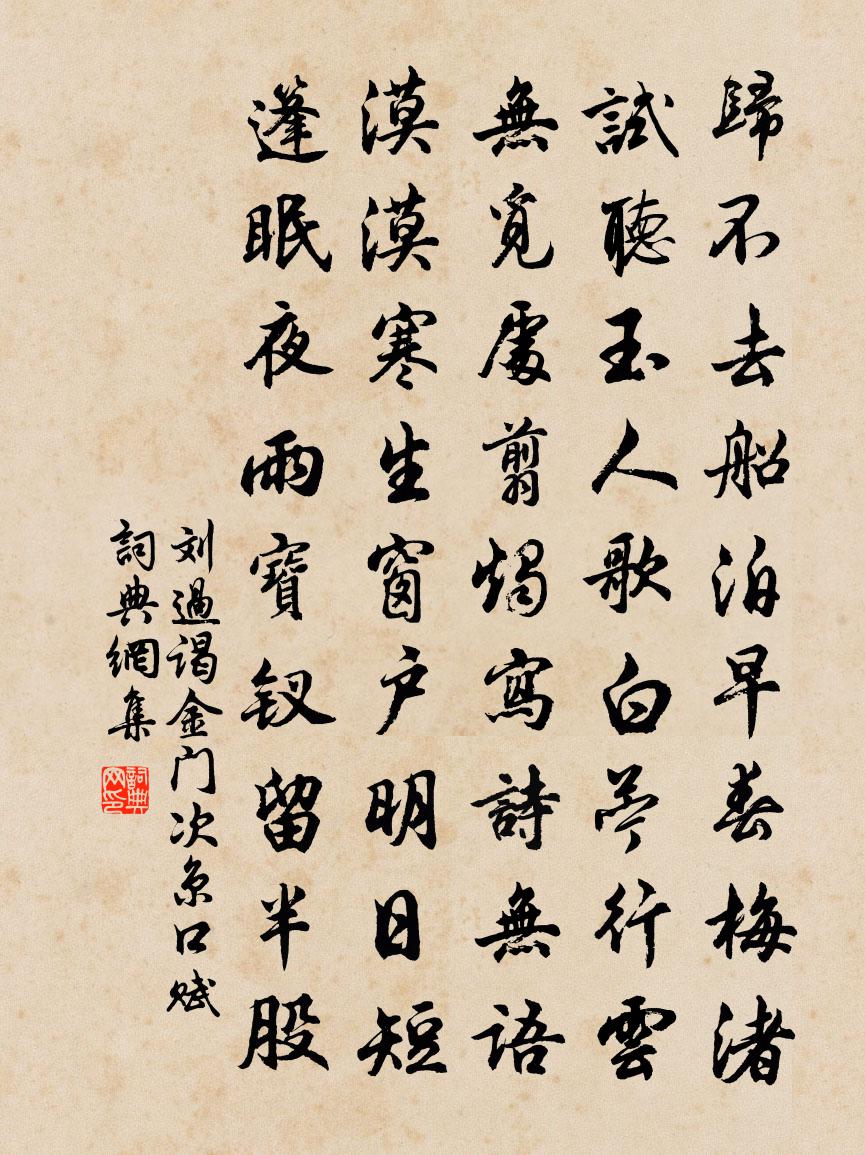 歸不去船泊早春梅渚
試聽玉人歌白苧行雲
無覓處翦燭寫詩無語
漠漠寒生窗戶明日短
篷眠夜雨寶釵留半股
刘過谒金门次京口赋
詞典網集
詞典网印